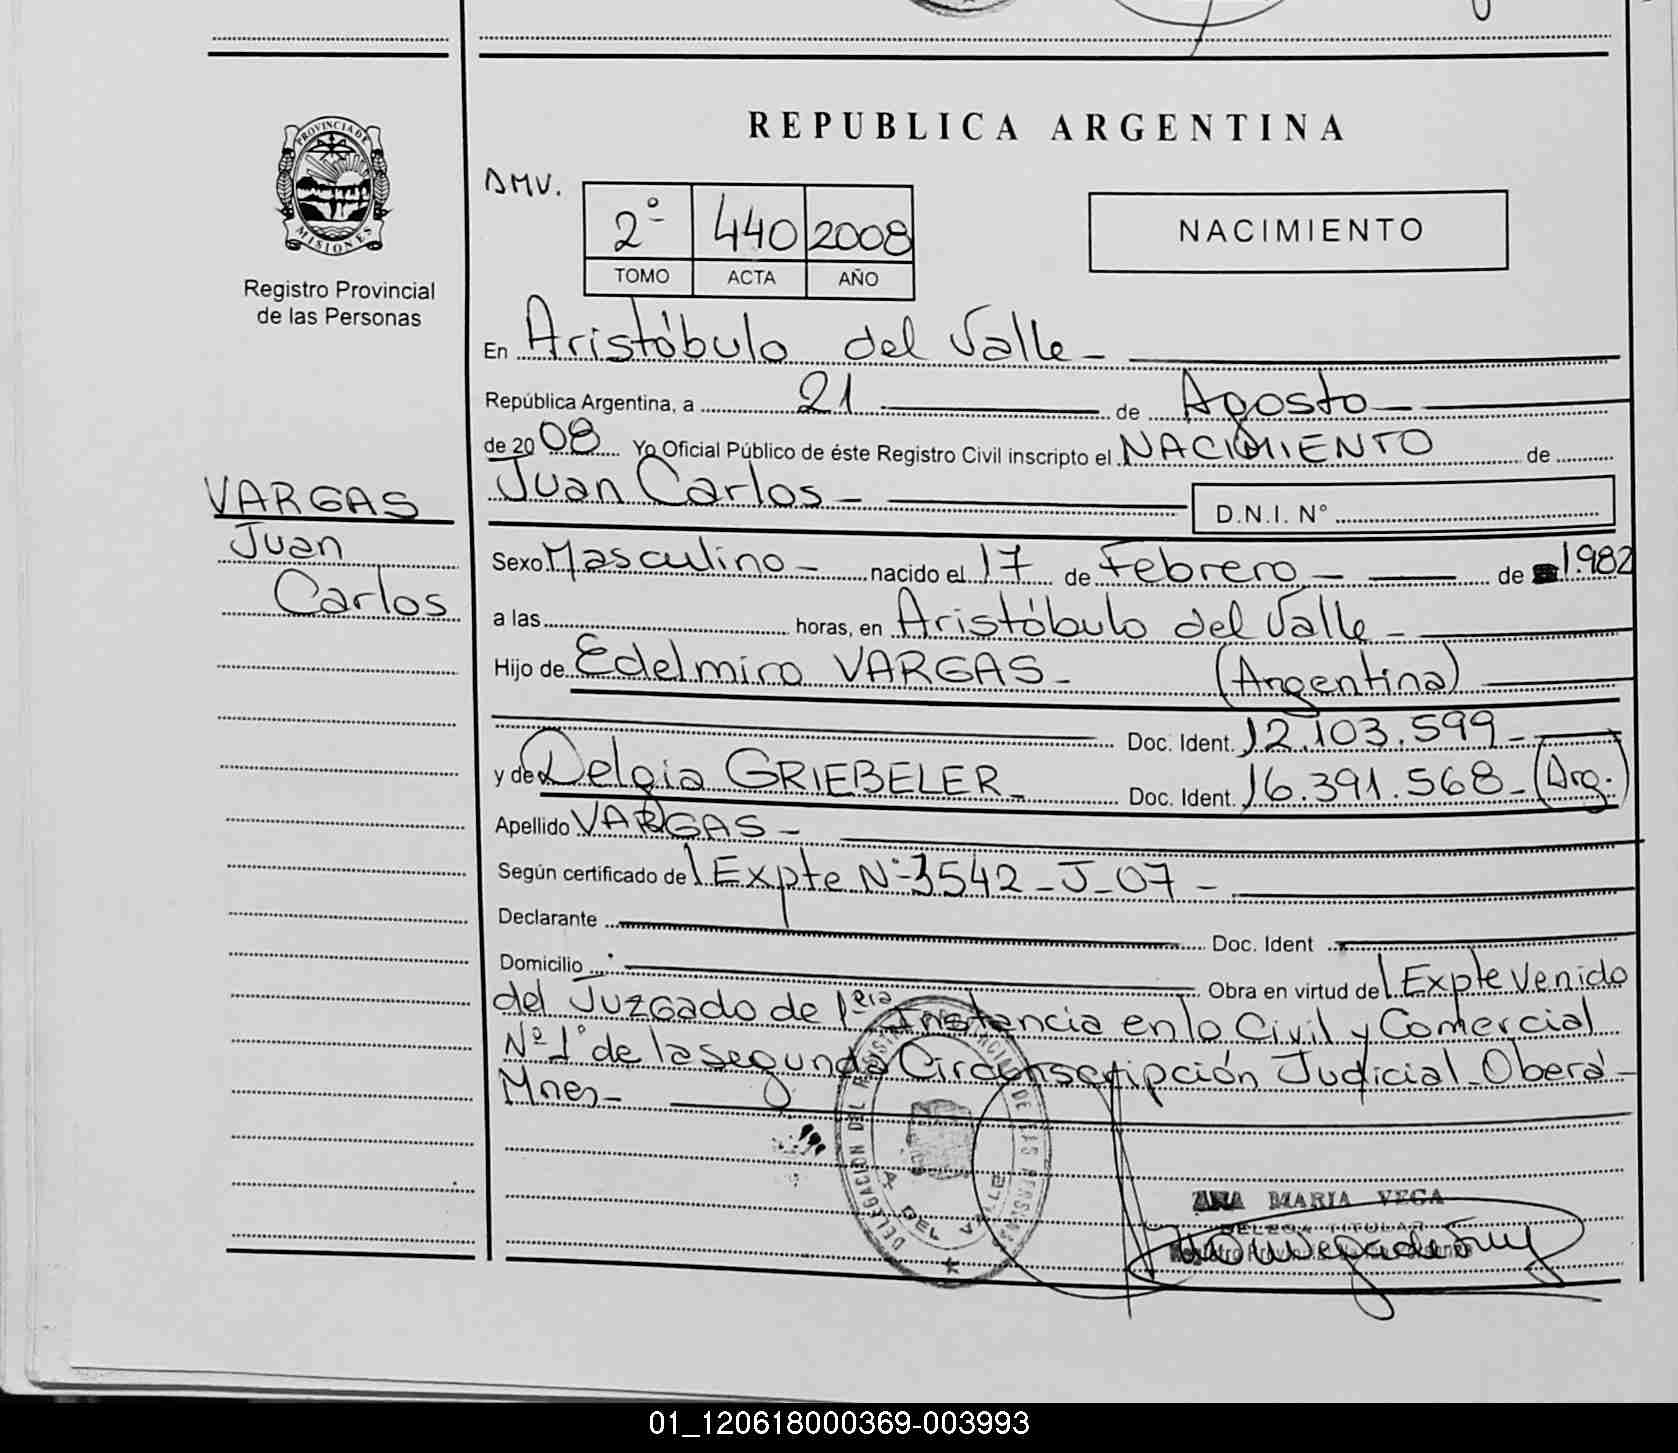 REPUBLICA ARGENTINA
PROVINCIA DE MISIONES
Registro Provincial
de las Personas
DMV.
2º 440 2008
TOMO ACTA AÑO
NACIMIENTO
En Aristóbulo del Valle -
República Argentina, a 21 de Agosto -
de 2008 Yo Oficial Público de éste Registro Civil inscripto el NACIMIENTO de
Juan Carlos - D.N.I. N°
VARGAS
Juan
Carlos
Sexo Masculino - nacido el 17 de Febrero - de 1982
a las horas, en Aristóbulo del Valle -
Hijo de Edelmiro VARGAS - (Argentina)
Doc. Ident. 12.103.599 -
y de Delgia GRIEBELER - Doc. Ident. 16.391.568 - (Arg.)
Apellido VARGAS -
Según certificado de Expte Nº 3542 - J - 07 -
Declarante Doc. Ident
Domicilio Obra en virtud del Expte venido
del Juzgado de 1era Instancia en lo Civil y Comercial
Nº 1º de la segunda Circunscripción Judicial - Oberá -
Mnes -
DELEGACION DEL REGISTRO PROVINCIAL DE LAS PERSONAS
A. DEL VALLE
ANA MARIA VEGA
DELEGADA TITULAR
01_120618000369-003993